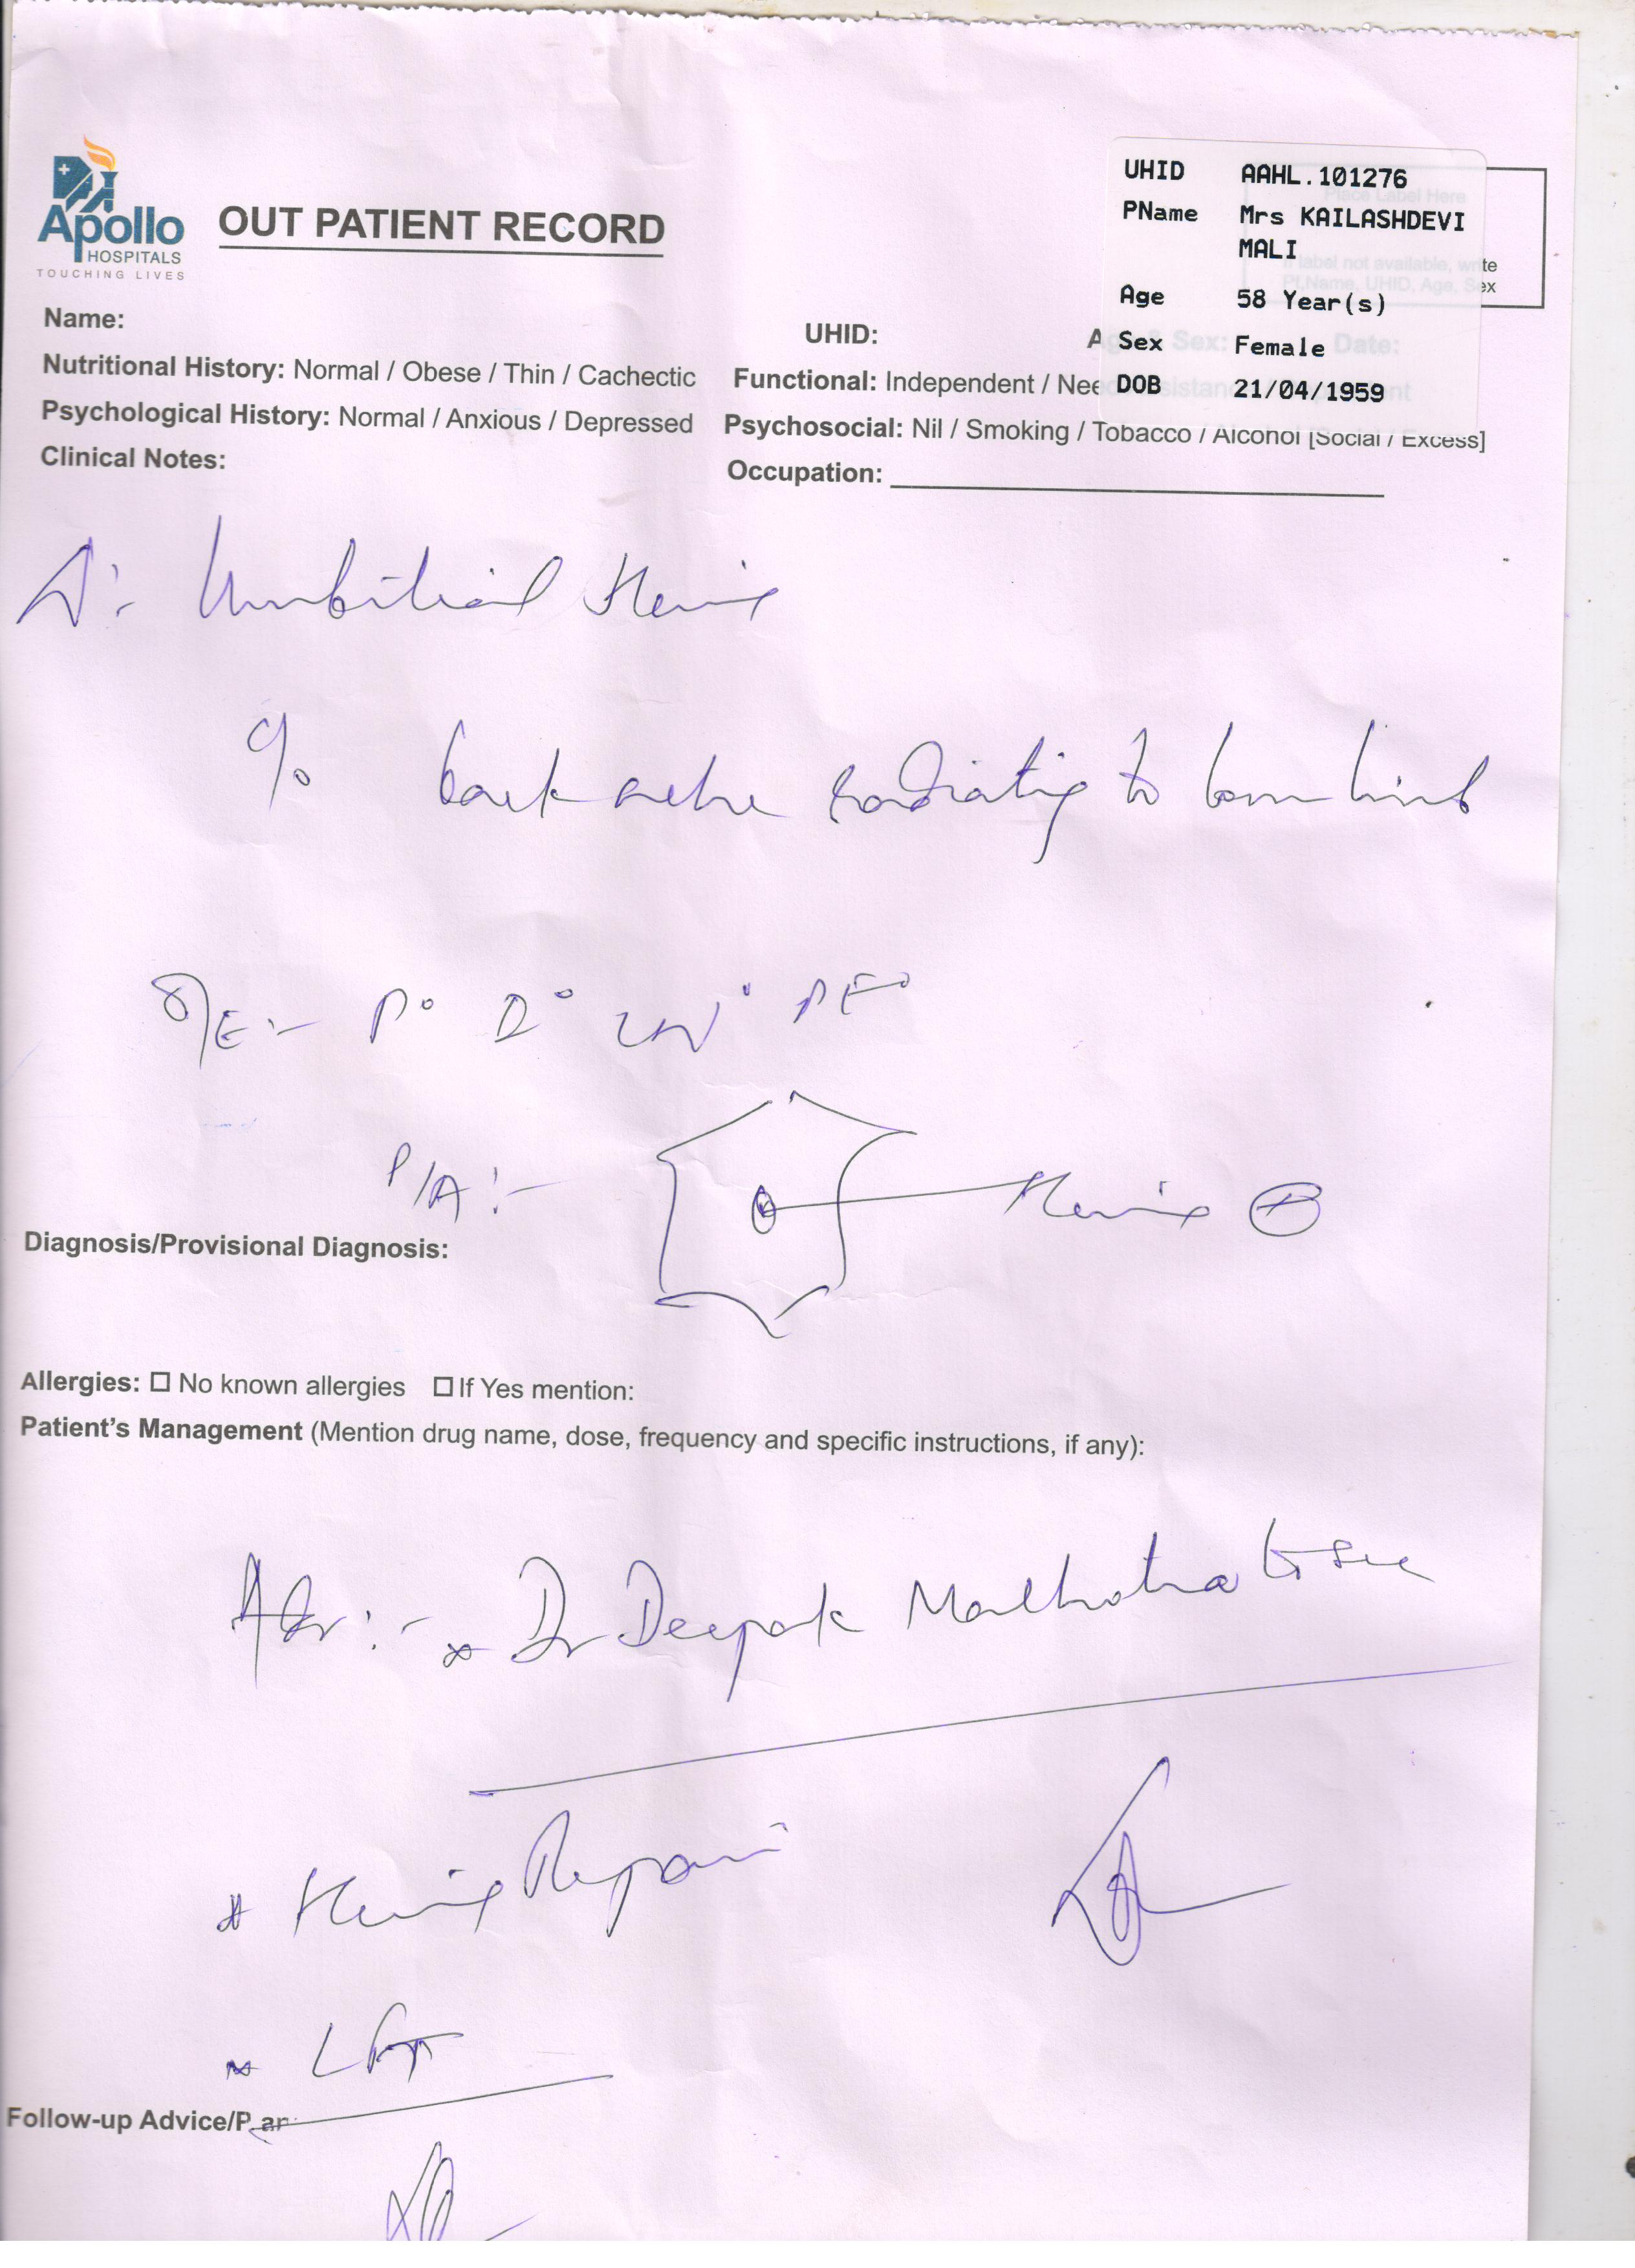 Apollo
HOSPITALS
TOUCHING LIVES
OUT PATIENT RECORD
UHID AAHL.101276
PName Mrs KAILASHDEVI
MALI
Age 58 Year(s)
Sex Female
DOB 21/04/1959
Place Label Here
If label not available, write
Pt.Name, UHID, Age, Sex
Name: UHID: Age & Sex: Date:
Nutritional History: Normal / Obese / Thin / Cachectic Functional: Independent / Nee
Psychological History: Normal / Anxious / Depressed Psychosocial: Nil / Smoking / Tobacco / Alcohol [Social / Excess]
Clinical Notes: Occupation:
Δ:- Umbilical Hernia
c/o back ache radiating to lower limb
O/E:- P° I° LN° PE°
P/A:- Hernia ⊕
Diagnosis/Provisional Diagnosis:
Allergies: ☐ No known allergies ☐ If Yes mention:
Patient's Management (Mention drug name, dose, frequency and specific instructions, if any):
Adv:- Dr Deepak Malhotra to see
* Hernia Repair
* LFT
Follow-up Advice/Plan: